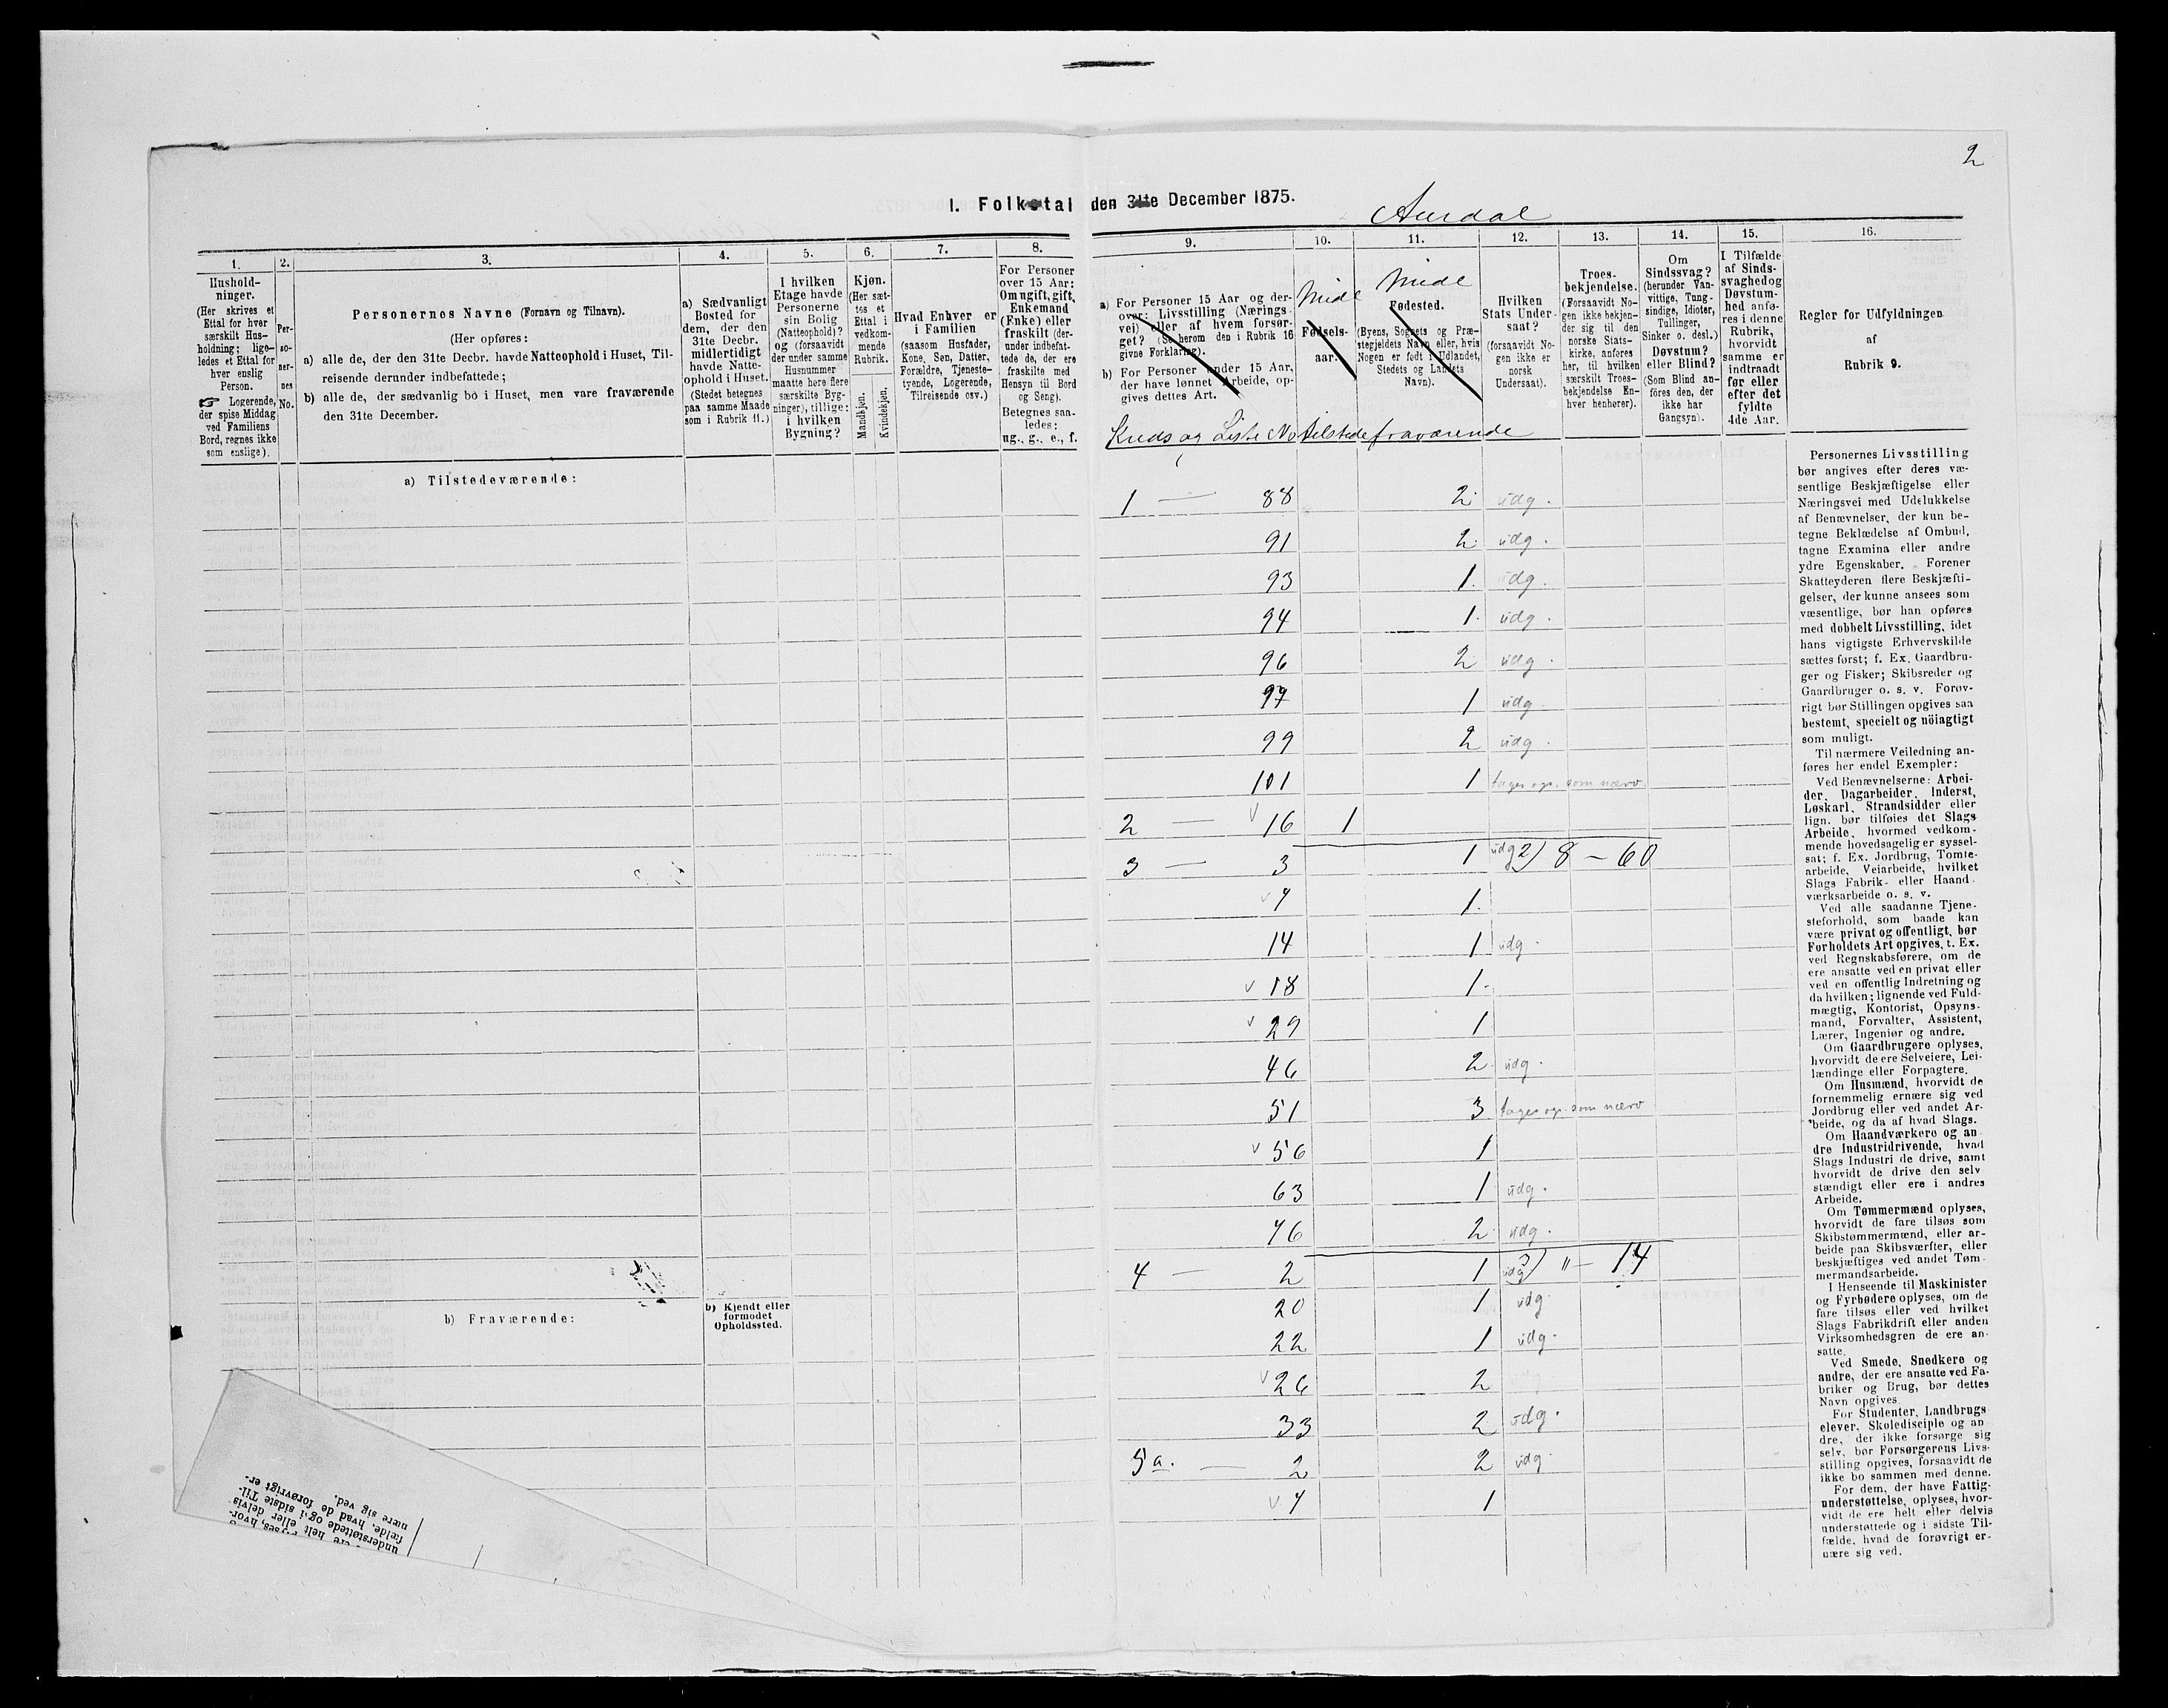 2
I. Folketal den 31te December 1875.
Aurdal
1.
Hushold-
ninger.
(Her skrives et
Ettal for hver
særskilt Hus-
holdning; lige-
ledes et Ettal for
hver enslig
Person.
☞ Logerende,
der spise Middag
ved Familiens
Bord, regnes ikke
som enslige).
2.
Per-
so-
ner-
nes
No.
3.
Personernes Navne (Fornavn og Tilnavn).
(Her opføres:
a) alle de, der den 31te Decbr. havde Natteophold i Huset, Til-
reisende derunder indbefattede;
b) alle de, der sædvanlig bo i Huset, men vare fraværende
den 31te December.
4.
a) Sædvanligt
Bosted for
dem, der den
31te Decbr.
midlertidigt
havde Natte-
ophold i Huset.
(Stedet betegnes
paa samme Maade
som i Rubrik 11.)
5.
I hvilken
Etage havde
Personerne
sin Bolig
(Natteophold)?
og (forsaavidt
der under samme
Husnummer
maatte høre flere
særskilte Byg-
ninger), tillige:
i hvilken
Bygning?
6.
Kjøn.
(Her sæt-
tes et
Ettal i
vedkom-
mende
Rubrik.
Mandkjøn.
Kvindekjøn.
7.
Hvad Enhver er
i Familien
(saasom Husfader,
Kone, Søn, Datter,
Forældre, Tjeneste-
tyende, Logerende,
Tilreisende osv.)
8.
For Personer
over 15 Aar:
Om ugift, gift,
Enkemand
(Enke) eller
fraskilt (der-
under indbefat-
tede de, der ere
fraskilte med
Hensyn til Bord
og Seng).
Betegnes saa-
ledes:
ug., g., e., f.
9.
a) For Personer 15 Aar og der-
over: Livsstilling (Nærings-
vei) eller af hvem forsør-
get? (Se herom den i Rubrik 16
givne Forklaring).
b) For Personer under 15 Aar,
der have lønnet Arbeide, op-
gives dettes Art.
10.
Mide
Fødsels-
aar.
11.
Mide
Fødested.
(Byens, Sognets og Præ-
stegjeldets Navn eller, hvis
Nogen er født i Udlandet,
Stedets og Landets
Navn).
12.
Hvilken
Stats Under-
saat?
(forsaavidt No-
gen ikke er
norsk
Undersaat).
13.
Troes-
bekjendelse.
(Forsaavidt No-
gen ikke bekjen-
der sig til den
norske Stats-
kirke, anføres
her, til hvilken
særskilt Troes-
bekjendelse En-
hver henhører).
14.
Om
Sindssvag?
(herunder Van-
vittige, Tung-
sindige, Idioter,
Tullinger,
Sinker o. desl.)
Døvstum?
eller Blind?
(Som Blind an-
føres den, der
ikke har
Gangsyn).
15.
I Tilfælde
af Sinds-
svaghed og
Døvstum-
hed anfø-
res i denne
Rubrik,
hvorvidt
samme er
indtraadt
før eller
efter det
fyldte
4de Aar.
16.
Regler for Udfyldningen
af
Rubrik 9.
Kreds og Liste No tilstede fraværende
a) Tilstedeværende:
1 — 88 2 udg.
91 2 udg.
93 1. udg.
94 1. udg.
96 2 udg.
97 1 udg.
99 2 udg.
101 1 tages op. som nærv.
2 — v 16 1
3 — 3 1 udg 2) 8 — 60
v 7 1.
14 1 udg.
v 18 1.
v 29 1
46 2 udg.
51 3 tages op. som nærv
v 56 1
63 1 udg.
76 2 udg.
4 — 2 1 udg 3) " — 14
20 1 udg
22 1 udg.
v 26 2
33 2 udg.
5a. — 2 2 udg
v 7 1
b) Fraværende:
b) Kjendt eller
formodet
Opholdssted.
Personernes Livsstilling
bør angives efter deres væ-
sentlige Beskjæftigelse eller
Næringsvei med Udelukkelse
af Benævnelser, der kun be-
tegne Beklædelse af Ombud,
tagne Examina eller andre
ydre Egenskaber. Forener
Skatteyderen flere Beskjæfti-
gelser, der kunne ansees som
væsentlige, bør han opføres
med dobbelt Livsstilling, idet
hans vigtigste Erhvervskilde
sættes først; f. Ex. Gaardbru-
ger og Fisker; Skibsreder og
Gaardbruger o. s. v. Forøv-
rigt bør Stillingen opgives saa
bestemt, specielt og nöiagtigt
som muligt.
Til nærmere Veiledning an-
føres her endel Exempler:
Ved Benævnelserne: Arbei-
der, Dagarbeider, Inderst,
Løskarl, Strandsidder eller
lign. bør tilføies det Slags
Arbeide, hvormed vedkom-
mende hovedsagelig er syssel-
sat; f. Ex. Jordbrug, Tomte-
arbeide, Veiarbeide, hvilket
Slags Fabrik- eller Haand-
værksarbeide o. s. v.
Ved alle saadanne Tjene-
steforhold, som baade kan
være privat og offentligt, bør
Forholdets Art opgives, t. Ex.
ved Regnskabsførere, om de
ere ansatte ved en privat eller
ved en offentlig Indretning og
da hvilken; lignende ved Fuld-
mægtig, Kontorist, Opsyns-
mand, Forvalter, Assistent,
Lærer, Ingeniør og andre.
Om Gaardbrugere oplyses,
hvorvidt de ere Selveiere, Lei-
lændinge eller Forpagtere.
Om Husmænd, hvorvidt de
fornemmelig ernære sig ved
Jordbrug eller ved andet Ar-
beide, og da af hvad Slags.
Om Haandværkere og an
dre Industridrivende, hvad
Slags Industri de drive, samt
hvorvidt de drive den selv
stændigt eller ere i andres
Arbeide.
Om Tømmermænd oplyses,
hvorvidt de fare tilsøs som
Skibstømmermænd, eller ar-
beide paa Skibsværfter, eller
beskjæftiges ved andet Tøm-
mermandsarbeide.
I Henseende til Maskinister
og Fyrbødere oplyses, om de
fare tilsøs eller ved hvilket
Slags Fabrikdrift eller anden
Virksomhedsgren de ere an-
satte.
Ved Smede, Snedkere og
andre, der ere ansatte ved Fa-
briker og Brug, bør dettes
Navn opgives.
For Studenter, Landbrugs
elever, Skoledisciple og an
dre, der ikke forsørge sig
selv, bør Forsørgerens Livs-
stilling opgives, forsaavidt de
ikke bo sammen med denne.
For dem, der have Fattig-
understøttelse, oplyses, hvor-
vidt de ere helt eller delvis
understøttede og i sidste Til-
fælde, hvad de forøvrigt er-
nære sig ved.
yses, hvor-
ere helt eller delvis
understøttede og i sidste Til-
fælde, hvad de forøvrigt er-
nære sig ved.